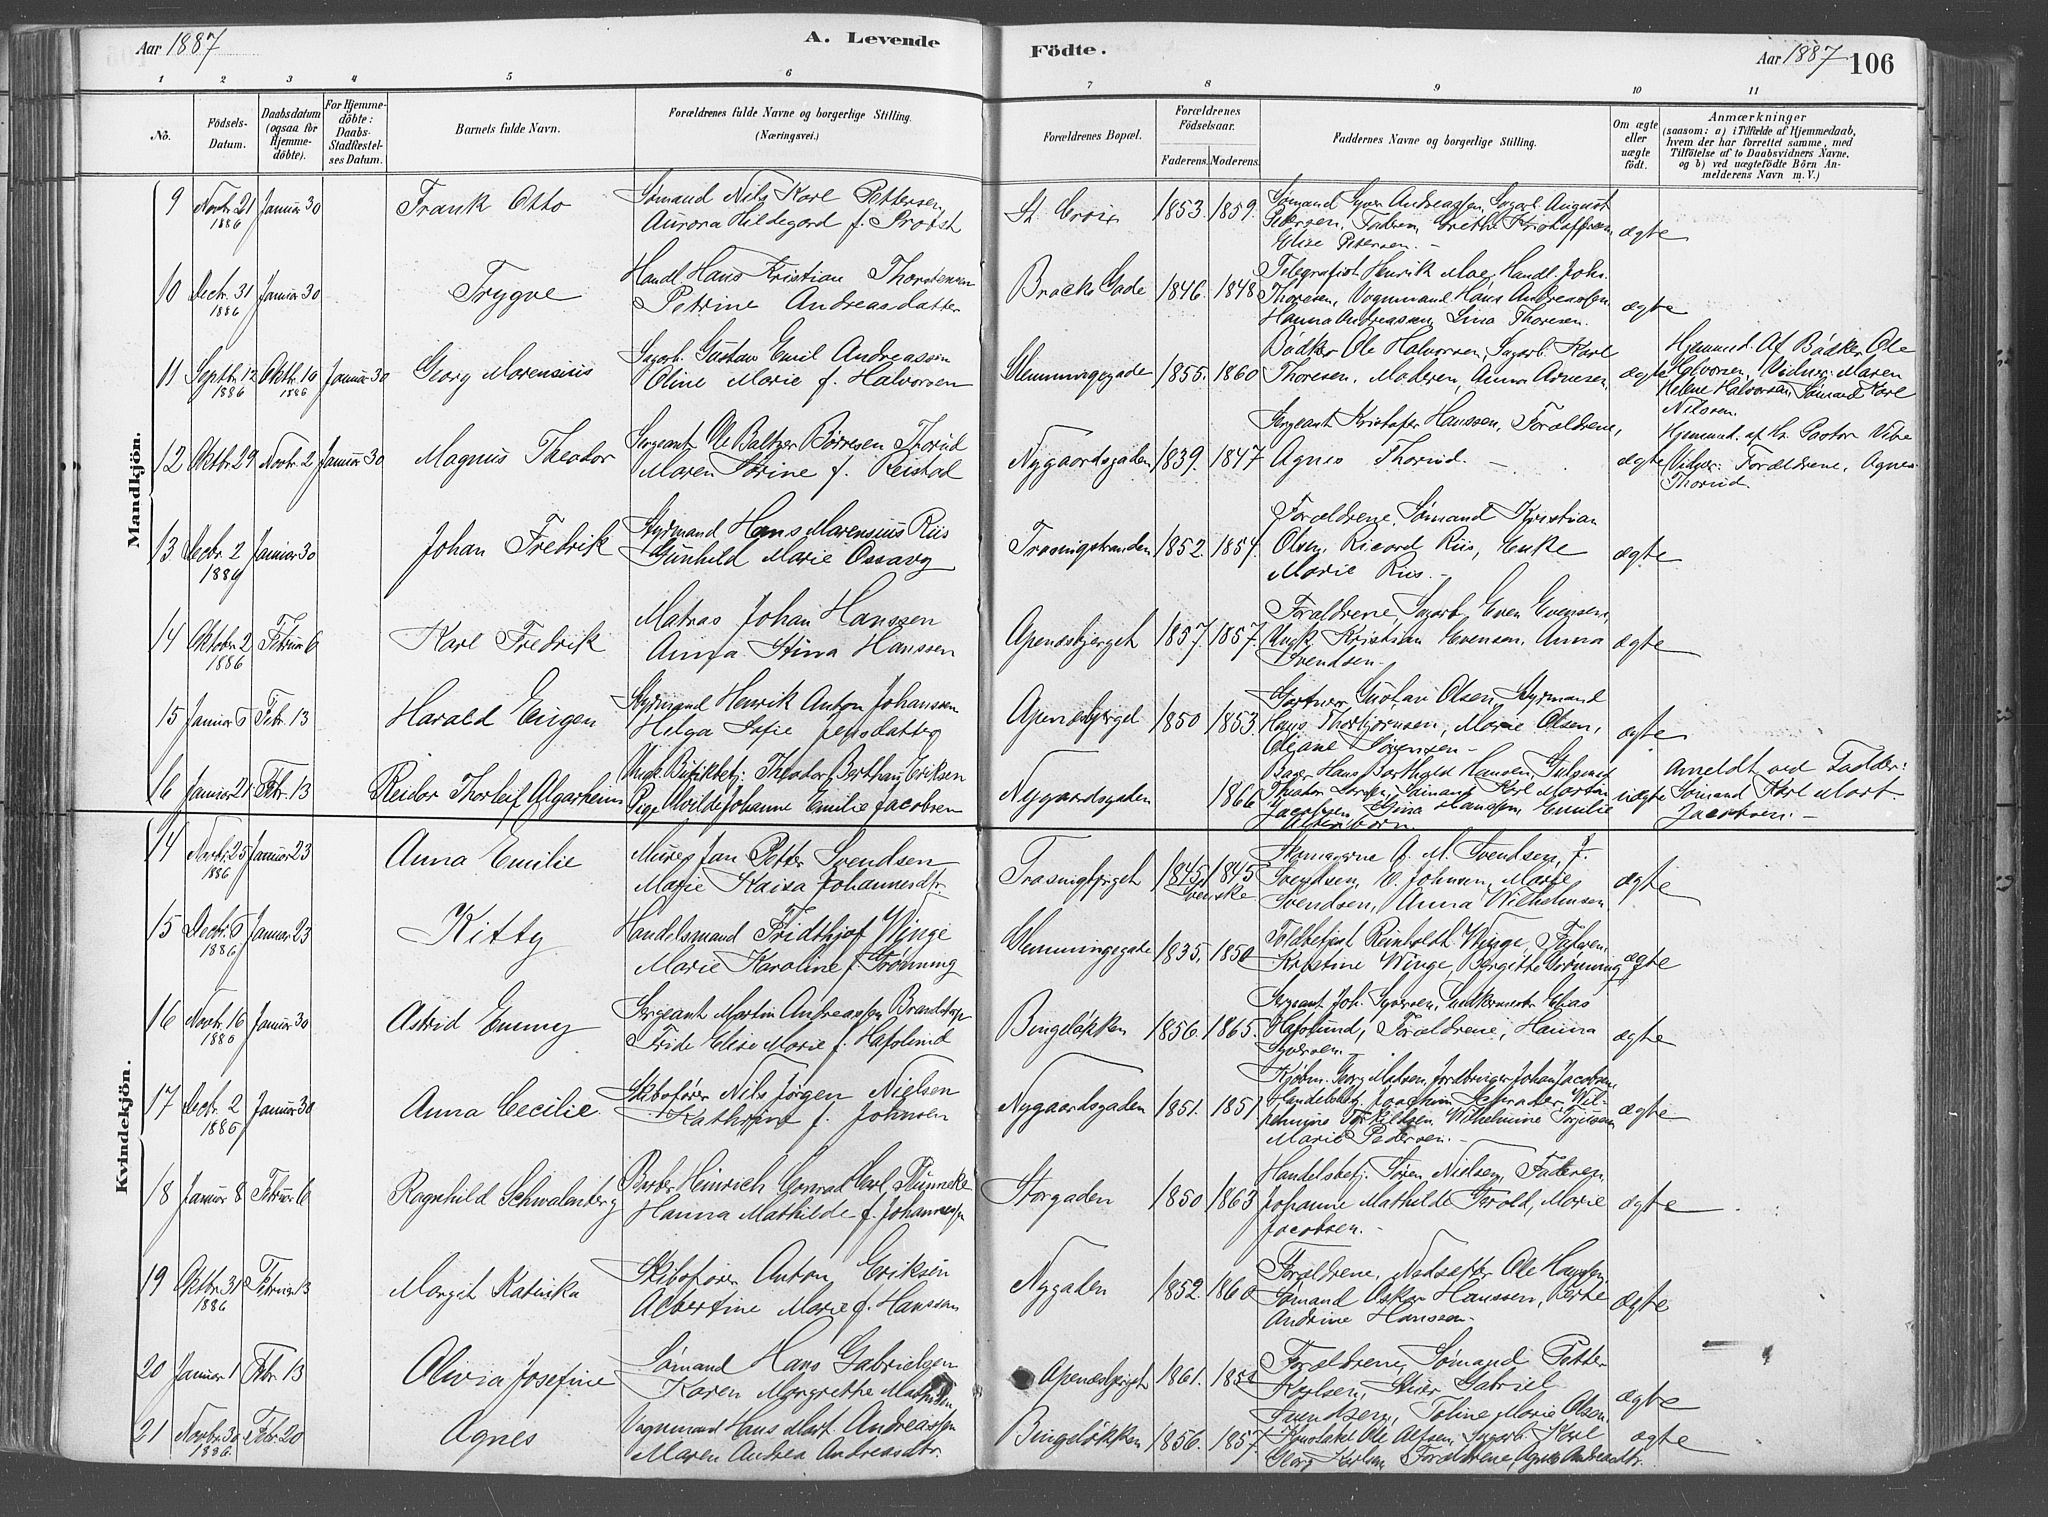 Aar 1887
A. Levende
Födte.
Aar 1887
106
1 2 3 4 5 6 7 8 9 10 11
No.
Födsels-Datum.
Daabsdatum (ogsaa for Hjemmedöbte).
For Hjemmedöbte: Daabs-Stadfæstelses Datum.
Barnets fulde Navn.
Forældrenes fulde Navne og borgerlige Stilling. (Næringsvei.)
Forældrenes Bopæl.
Forældrenes Födselsaar.
Faderens. Moderens.
Faddernes Navne og borgerlige Stilling.
Om ægte eller uægte födt.
Anmærkninger
(saasom: a) i Tilfælde af Hjemmedaab, hvem der har forrettet samme, med Tilföielse af to Daabsvidners Navne, og b) ved uægtefödte Börn Anmelderens Navn m. V.)
Mandkjön.
9 Novbr. 21 1886 Januar 30 Frank Otto
Sømand Nils Karl Pettersen
Aurora Hildegard f. Probst
St. Croix 1853. 1859.
Sømand Syver Andreassen, Sagarb. August
Petersen, Faderen, Grethe Kristoffersen
Elise Petersen. -
ægte
10 Decbr. 31 1886 Januar 30 Trygve
Handl. Hans Kristian Thorstensen
Petrine Andreasdatter
Brocks Gade 1846. 1848
Telegrafist Henrik Moe, Handl. Johs.
Thoresen, Vognmand Hans Andreassen
Hanna Andreassen, Lina Thoresen.
ægte
11 Septbr. 12 1886 Oktbr. 10 1886 Januar 30 Georg Marensius
Sagarb. Gustav Emil Andreassen
Oline Marie f. Halvorsen
Glemmingegade 1855. 1860
Bødker Ole Halvorsen, Sagarb. Karl
Thoresen, Moderen, Anna Arnesen
ægte
Hjemmed. Af Bødker Ole
Halvorsen, Vidner: Maren
Helene Halvorsen, Sømand Karl
Nilsen.
12 Oktbr. 29 Novbr. 2 Januar 30 Magnus Theodor
Sergeant Ole Baltzer Børresen Thorud
Maren Sirine f. Reistad
Nygaardsgaden 1839. 1847
Sergeant Kristofer Hanssen, Forældrene,
Agnes Thorud. -
ægte
Hjemmed. af Hr. Pastor Vibe
Vidner: Forældrene, Agnes
Thorud.
13. Decbr. 2 1886 Januar 30 Johan Fredrik
Styrmand Hans Marensius Riis
Gunhild Marie Ossavg
Trosvigstranden 1852. 1854.
Forældrene, Sømand Kristian
Olsen, Ricard Riis, Enke
Marie Riis. -
ægte
14 Oktobr. 2 1886 Februar 6 Karl Fredrik
Matros Johan Hanssen
Anna Stina Hanssen
Apenæsbjerget 1857. 1857.
Forældrene, Sagarb. Even Evensen,
Ungk. Kristian Evensen, Anna
Svendsen. -
ægte
15 Januar 6 Febr. 13 Harald Eugen
Styrmand Henrik Anton Johanssen
Helga Sofie Jensdatter
Apenæsbjerget 1850 1853.
Gartner Gustav Olsen, Styrmand
Hans Thorbjørnsen, Marie Olsen,
Oleane Sørensen -
ægte
16 Januar 21 Febr. 13 Reidar Thorleif Algarheim
Ungk. Butikbetj. Theodor Berthau Eriksen
Pige Alvilde Johanne Emilie Jacobsen
Nygaardsgaden 1866
Bager Hans Berthold Hansen,
Theodor Larsen, Sømand Karl Martin
Jacobsen, Gina Hanssen, Emilie
uægte
Anmeldt ved Fadder:
Sømand Karl Mart.
Jacobsen. -
Kvindekjön.
14 Novbr. 25 1886 Januar 23 Anna Emilie
Murer Jan Petter Svendsen
Marie Kaisa Johannesdtr.
Trosvigbjerget 1845 1845 Svenske
Skomagerne A. M. Svendsen, J.
Svendsen, C. Johnsen, Marie
Svendsen, Anna Wilhelmsen
ægte
15 Decbr. 6 1886 Januar 23 Kitty
Handelsmand Fridthjof Winge
Marie Karoline f. Grønning
Glemmingegade 1835. 1850
Toldbetjent Reinholdt Winge, Faderen,
Kristine Winge, Bergitte Grønning
ægte
16 Novbr. 16 1886 Januar 30 Astrid Emmy
Sergeant Martin Andreassen Brandstorp
Frida Elise Marie f. Hafslund
Bingeløkken 1856. 1865.
Sergeant Joh. Syversen, Elias
Hafslund, Forældrene, Hanna
Syversen. -
ægte
17 Decbr. 2 1886 Januar 30 Anna Cecilie
Skibsfører Nils Jørgen Nielsen
Kathrine f. Johnsen
Nygaardsgaden 1851. 1851
Kjøbm. Georg Madsen, Johan Jacobsen
Handelsbetj. Joachim Schrader, Wil-
helmine Torkildsen, Wilhelmine Torjusen
Marie Pedersen. -
ægte
18 Januar 8 Februar 6 Ragnhild Schwalenberg
Barber Heinrich Conrad Carl Plünneke
Hanna Mathilde f. Johannessen
Storgaden 1850 1863
Handelsbetj. Søren Nielsen, Faderen
Johanne Mathilde Harold, Marie
Jacobsen. -
ægte
19 Oktbr. 31 1886 Februar 13 Margit Katinka
Skibsfører Anton Eriksen
Albertine Marie f. Hanssen
Nygaden 1852. 1860
Forældrene, Ole Hanssen,
Sømand Oskar Hanssen, Berthe
Andrine Hanssen.
ægte
20 Januar 1 Febr. 13 Olivia Josefine
Sømand Hans Gabrielsen
Karen Margrethe
Apenæsbjerget 1861.
Forældrene, Sømand Petter
Karlsen, Gabriel
Svendsen, Toline Marie Olsen
ægte
21 Novbr. 30 1886 Febr. 20 Agnes
Vognmand Hans Mart. Andreassen
Maren Andrea Andreasdtr.
Bingeløkken 1856. 1857
Konstabel Ole Olsen, Sagarb. Karl
Georg Karlsen, Forældrene, Agnes Andreasdtr.
ægte